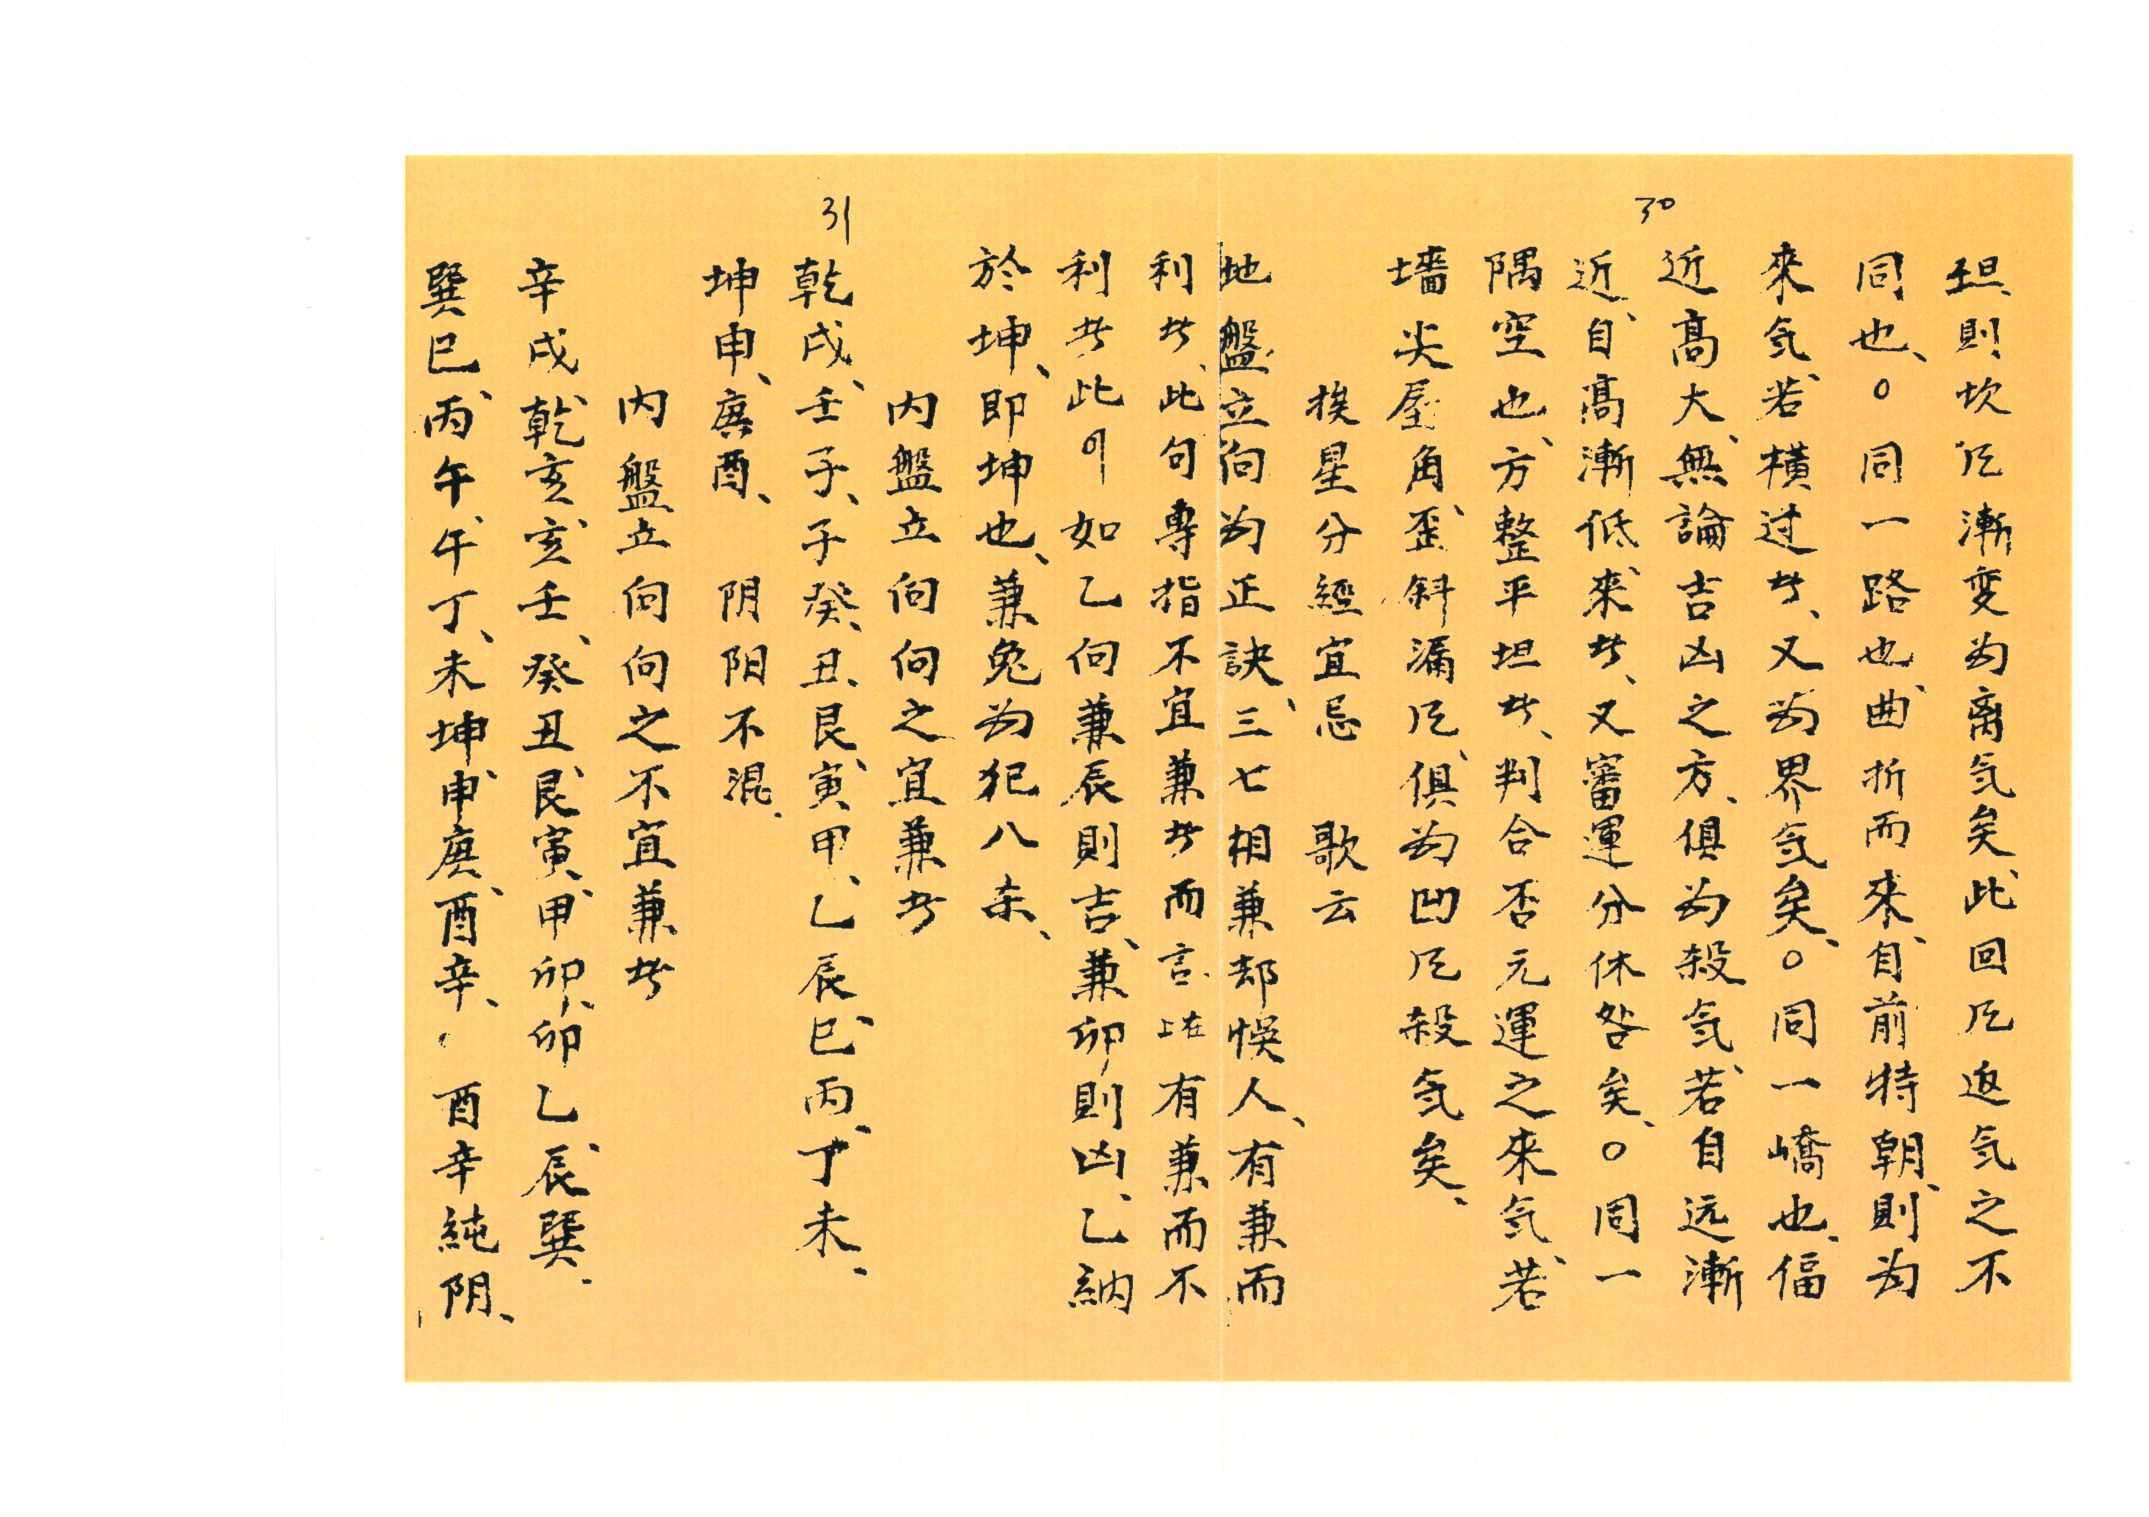 30
坦、則坎风漸变為离気矣、此回风返気之不
同也、○同一路也、曲折而來、自前特朝、則为
來気、若橫过者、又为界気矣、○同一嶠也、偪
近高大、無論吉凶之方、俱为殺気、若自远漸
近、自高漸低來者、又審運分休咎矣、○同一
隅空也、方整平坦者、判合否元運之來気、若
墻尖屋角、歪斜漏风、俱为凹风殺気矣、
挨星分經宜忌 歌云
地盤立向为正訣、三七相兼却悞人、有兼而
利者、此句專指不宜兼者而言、有兼而不
31
利者此 如乙向兼辰則吉、兼卯則凶、乙納
於坤、即坤也、兼兔为犯八杀、
内盤立向向之宜兼者
乾戌、壬子、子癸、丑艮、寅甲、乙辰、巳丙、丁未、
坤申、庚酉、 阴阳不混、
内盤立向向之不宜兼者
辛戌、乾亥、亥壬、癸丑、艮寅、甲卯、卯乙、辰巽、
巽巳、丙午、午丁、未坤、申庚、酉辛、酉辛純阴、